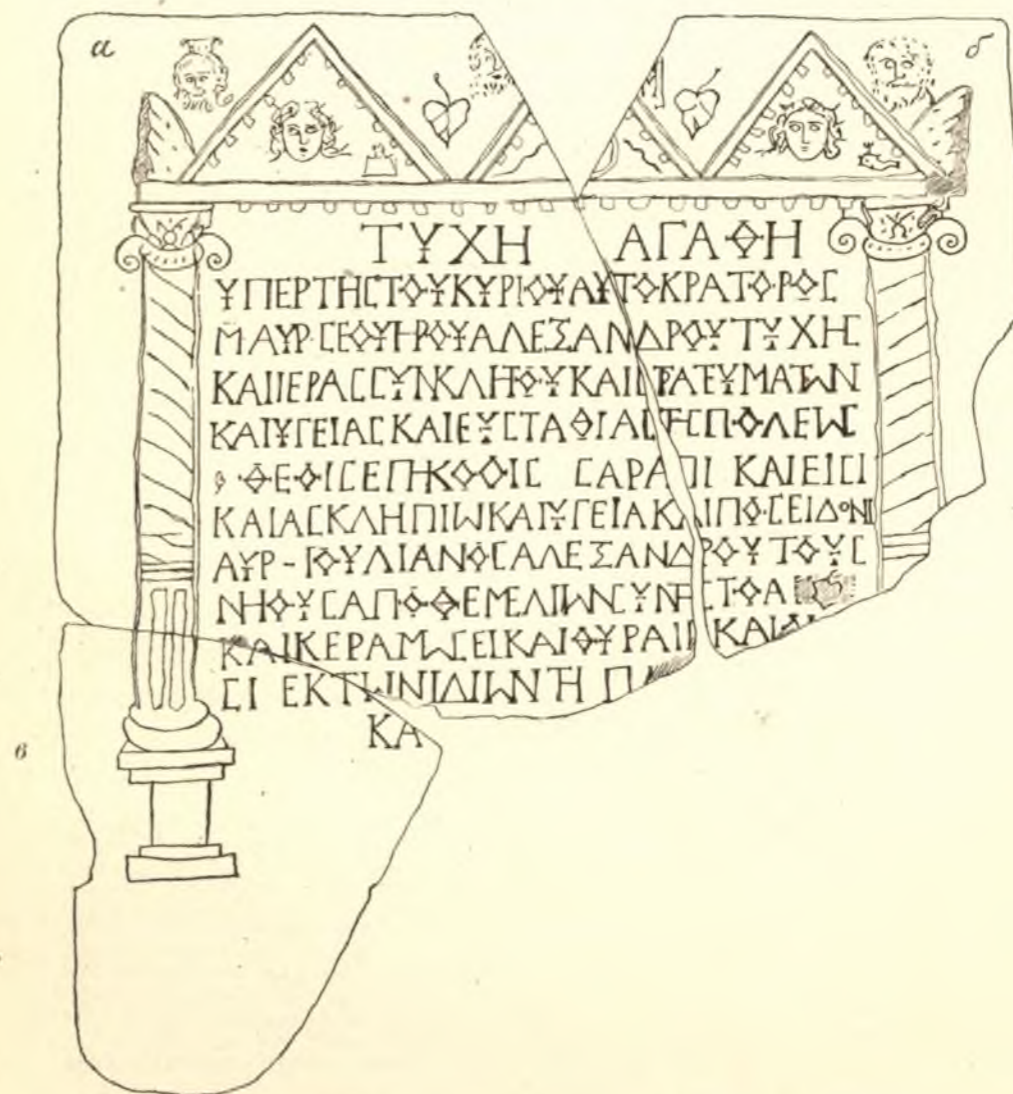 α δ
ΤΥΧΗ ΑΓΑΘΗ
ΥΠΕΡΤΗСΤΟΥΚΥΡΙΟΥΑΥΤΟΚΡΑΤΟΡΟС
ΜΑΥΡ·СΕΟΥΗΡΟΥΑΛΕΞΑΝΔΡΟΥΤΥΧΗС
ΚΑΙΙΕΡΑССΥΝΚΛΗΤΟΥΚΑΙСΤΡΑΤΕΥΜΑΤΩΝ
ΚΑΙΥΓΕΙΑСΚΑΙΕΥСΤΑΘΙΑСΤΗСΠΟΛΕΩС
ΘΕΟΙСΕΠΗΚΟΟΙС СΑΡΑΠΙ ΚΑΙΕΙСΙ
ΚΑΙΑСΚΛΗΠΙΩΚΑΙΥΓΕΙΑΚΑΙΠΟСΕΙΔΟΝΙ
ΑΥΡ-ΙΟΥΛΙΑΝΟСΑΛΕΞΑΝΔΡΟΥΤΟΥС
ΝΗΟΥСΑΠΟΘΕΜΕΛΙΩΝСΥΝСΤΟΑ
ΚΑΙΚΕΡΑΜΩСΕΙΚΑΙΘΥΡΑΙС ΚΑΙ
СΙ ΕΚΤΩΝΙΔΙΩΝΤΗ Π
ΚΑ
в